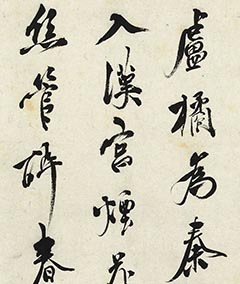 盧橘為秦
入漢宮煙
絲管醉春